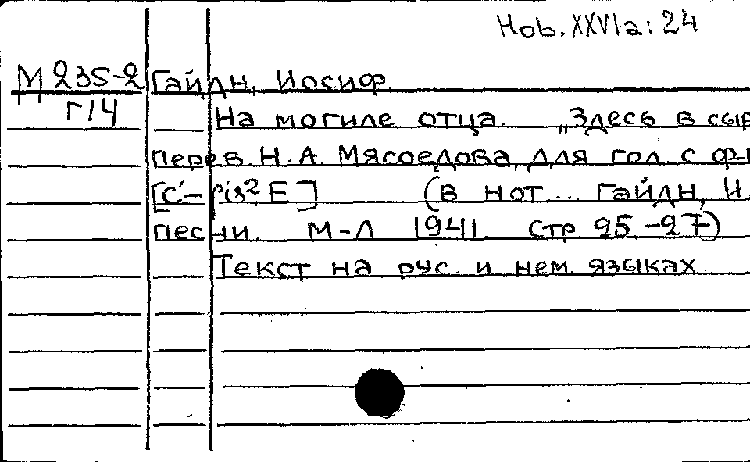 Hob. XXVIa: 24
М 235-2 Гайдн, Иосиф.
Г14 На могиле отца. „Здесь в сыр
перев. Н. А. Мясоедова, для гол. с ф-п
[c'-fis² E] (в нот... Гайдн, И.
песни. М-Л 1941 стр 25-27)
Текст на рус. и нем. языках